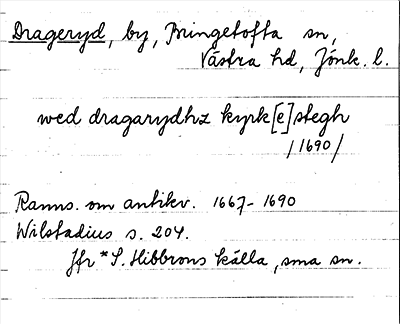 Drageryd, by, Bringetofta sn,
Västra hd, Jönk. l.
wed dragarydhz kyrk[e]stegh
/1690/
Ranns. om antikv. 1667-1690
Wilstadius s. 204.
Jfr *S. Hibbrons källa, sma sn.